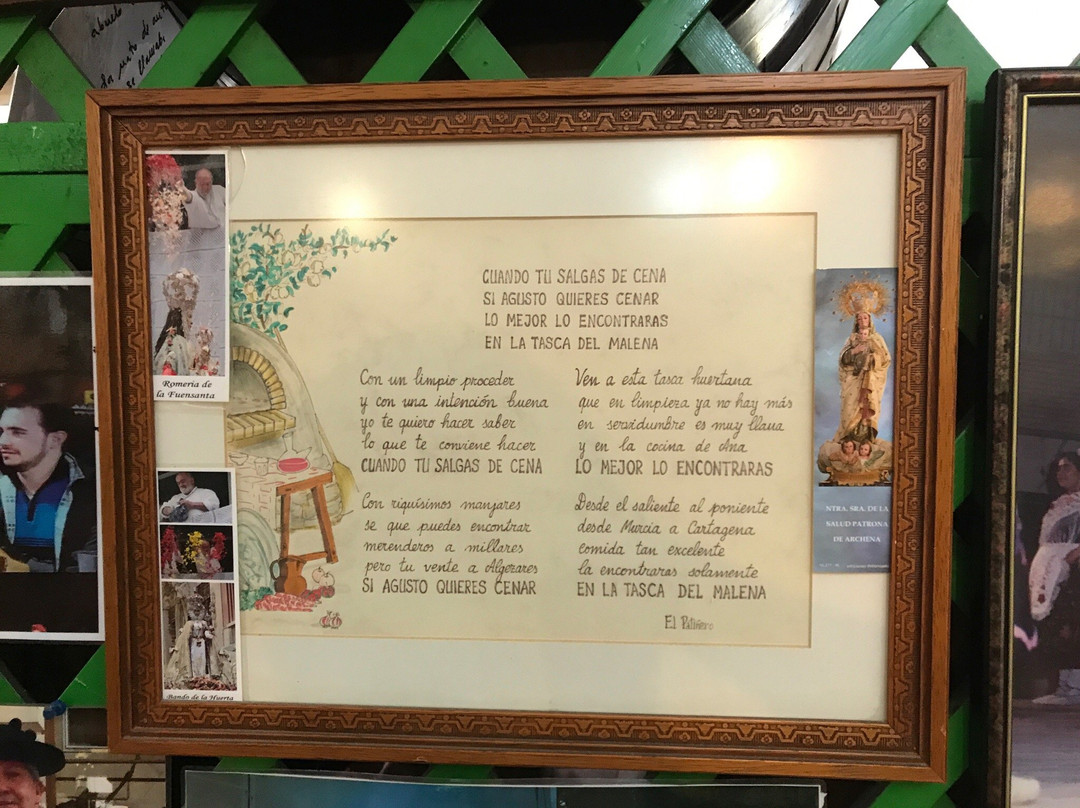 abuelo
CUANDO TU SALGAS DE CENA
SI AGUSTO QUIERES CENAR
LO MEJOR LO ENCONTRARAS
EN LA TASCA DEL MALENA
Con un limpio proceder
y con una intención buena
yo te quiero hacer saber
lo que te conviene hacer
CUANDO TU SALGAS DE CENA
Ven a esta tasca huertana
que en limpieza ya no hay más
en servidumbre es muy llana
y en la cocina de Ana
LO MEJOR LO ENCONTRARAS
Con riquísimos manjares
se que puedes encontrar
merenderos a millares
pero tu vente a Algezares
SI AGUSTO QUIERES CENAR
Desde el saliente al poniente
desde Murcia a Cartagena
comida tan excelente
la encontraras solamente
EN LA TASCA DEL MALENA
El Patiñero
Romería de
la Fuensanta
Bando de la Huerta
NTRA. SRA. DE LA
SALUD PATRONA
DE ARCHENA